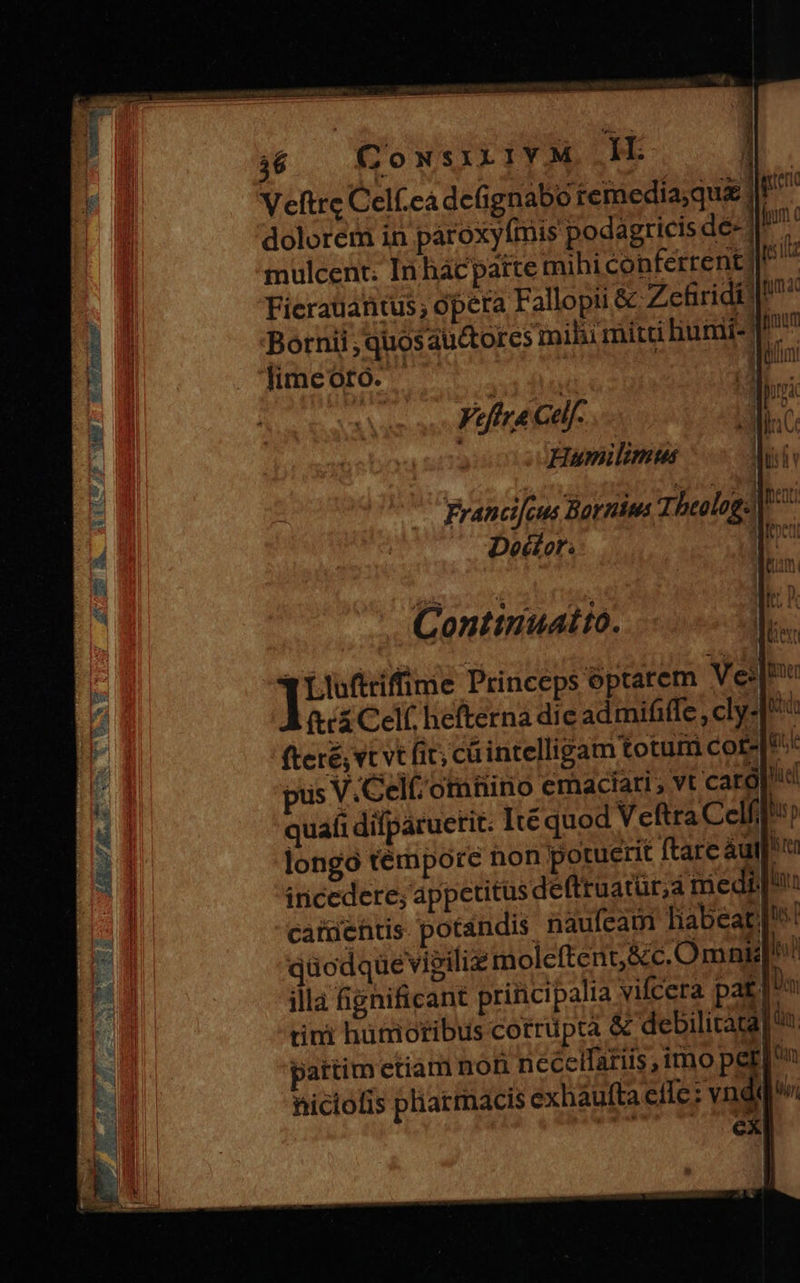 36 CONSILIVM II.
Veſtre Celſ.eá deſignabo remedia,quæ
dolorem in paroxyſmis podagricis de-
mulcent. In hác parte mihi conferrent
Fierauantus, opera Fallopii & Zefiridi
Bornii, quos auctores mihi mitti humi-
lime oro.
Veſtræ Celſ.
Humilimus
Franciſcus Bornius Theolog.
Doctor.
Continuatio.
ILluſtriſſime Princeps optarem Ve-
ſtrā Celſ. heſterna die admiſiſſe, cly-
ſterē, vt vt ſit, cū intelligam totum cor-
pus V. Celſ. omnino emaciari, vt caro
quaſi diſparuerit. Itē quod Veſtra Celſ.
longo tempore non potuerit ſtare aut
incedere, appetitus deſtruatur, à medi-
camentis potandis nauſeam habeat,
quodque vigiliæ moleſtent,&c. Omnia
illa ſignificant principalia viſcera par-
tim humoribus corrupta & debilitata
partim etiam non neceſſariis, imo per-
nicioſis pharmacis exhauſta eſſe: vnde
ex